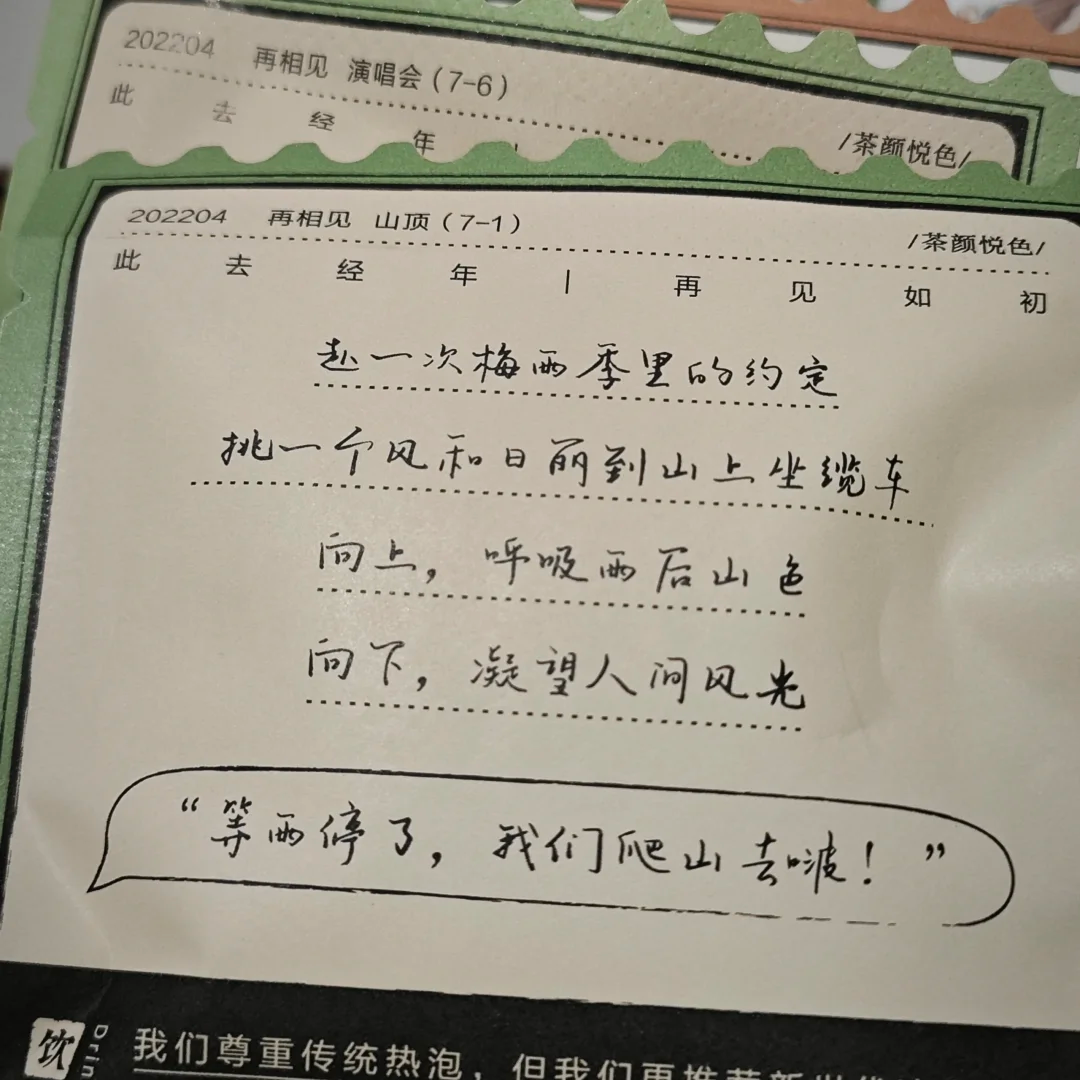 202204 再相见 演唱会(7-6)
/茶颜悦色/
此去经年
202204 再相见 山顶(7-1)
/茶颜悦色/
此去经年|再见如初
赴一次梅雨季里的约定
挑一个风和日丽到山上坐缆车
向上，呼吸雨后山色
向下，凝望人间风光
“等雨停了，我们爬山去啵！”
饮
Drin
我们尊重传统热泡，但我们更推荐新